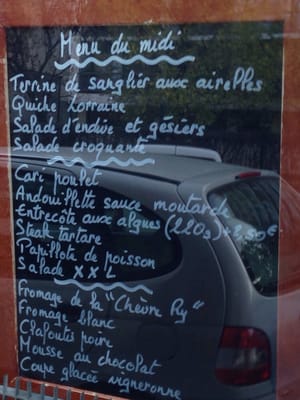 Menu du midi
Terrine de sanglier aux airelles
Quiche Lorraine
Salade d'endive et gésiers
Salade croquante
Cari poulet
Andouillette sauce moutarde
Entrecôte aux algues (220g) + 2,50€
Steak tartare
Papillote de poisson
Salade XXL
Fromage de la "Chèvre Ry"
Fromage blanc
Clafoutis poire
Mousse au chocolat
Coupe glacée vigneronne